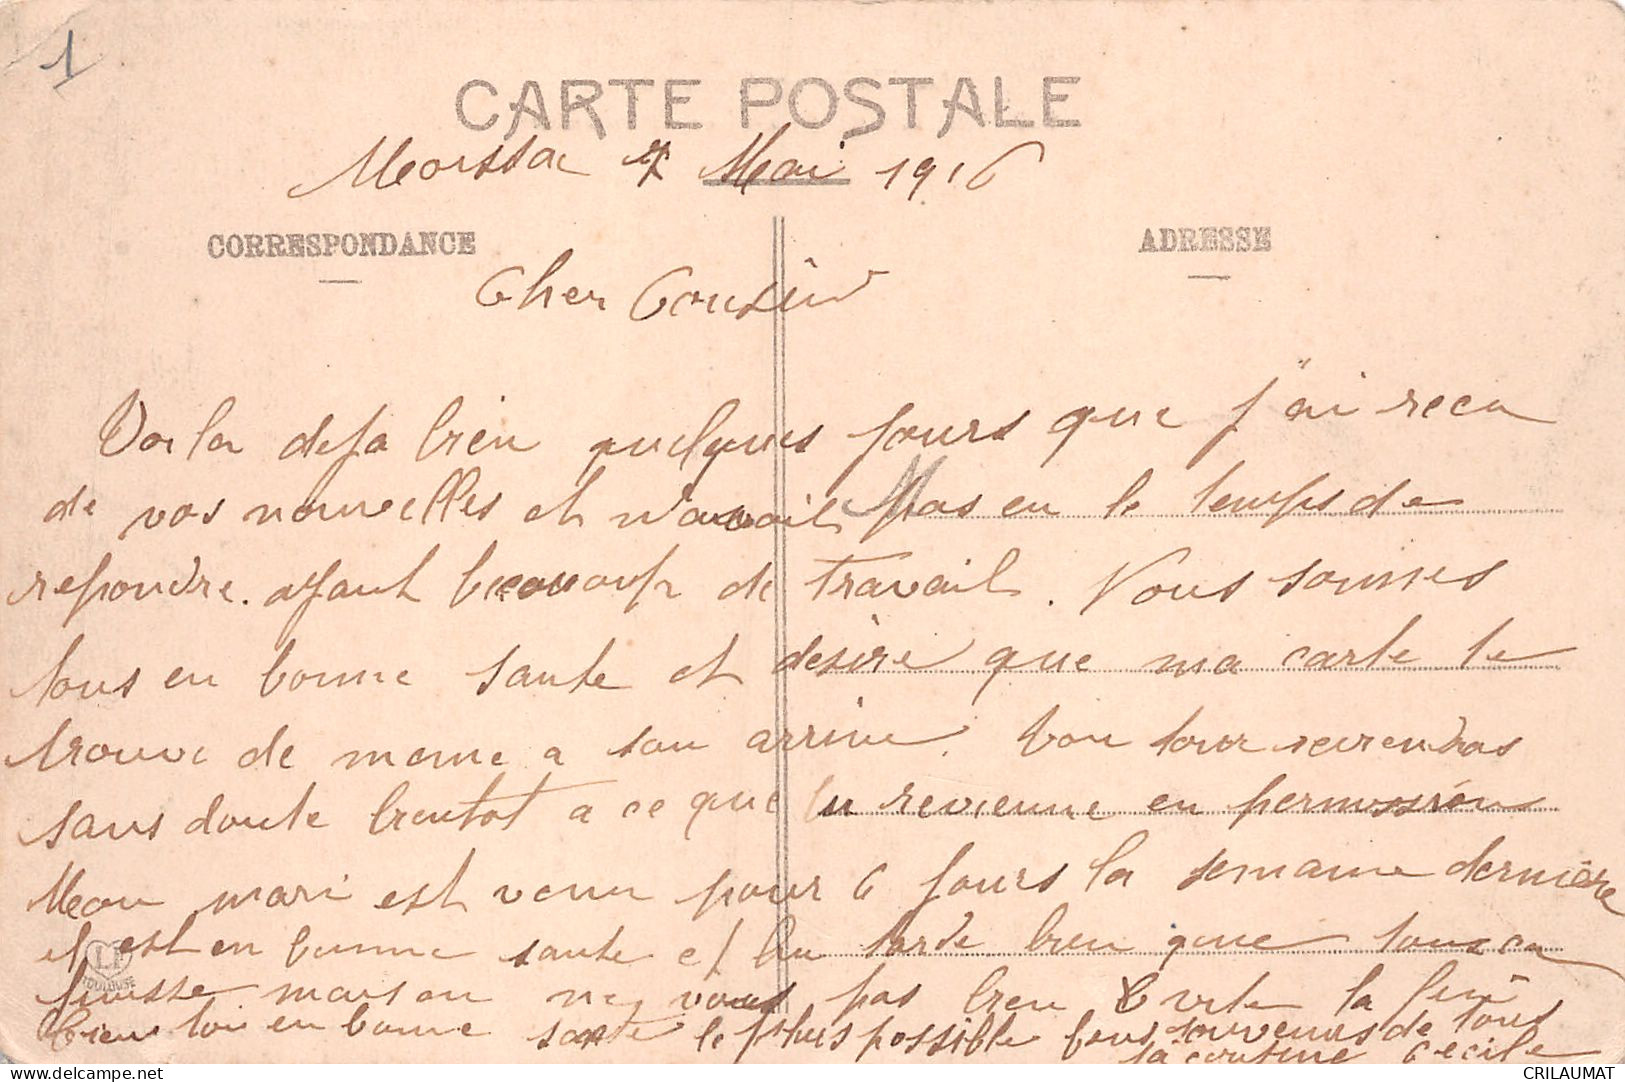 1
CARTE POSTALE
Moissac 7 Mai 1916
CORRESPONDANCE
ADRESSE
Cher Cousin
Voila deja bien quelques jours que j'ai recu
de vos nouvelles et n'avait pas eu le temps de
repondre. ayant beaucoup de travail. Nous sommes
tous en bonne sante et desire que ma carte te
trouve de meme a son arrive. Ton tour reviendras
sans doute bientot a ce que tu revienne en permission
Mon mari est venu pour 6 jours la semaine dernière
il est en bonne sante et lui tarde bien que tous ca
finisse. maison ne pas bien vite la fin
LF
TOULOUSE
tien toi en bonne sante le plus possible bons souvenirs de tous
ta cousine Cecile
CRILAUMAT